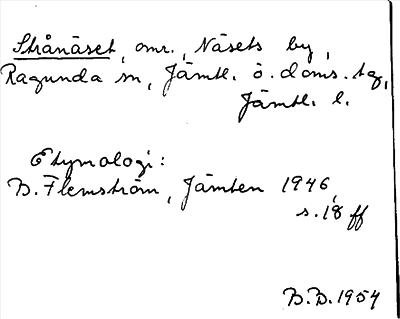 Strånäset, omr., Näsets by,
Ragunda sn, Jämtl. ö. doms. tag,
Jämtl. l.
Etymologi:
B. Flemström, Jämten 1946,
s. 18 ff
B.B. 1954